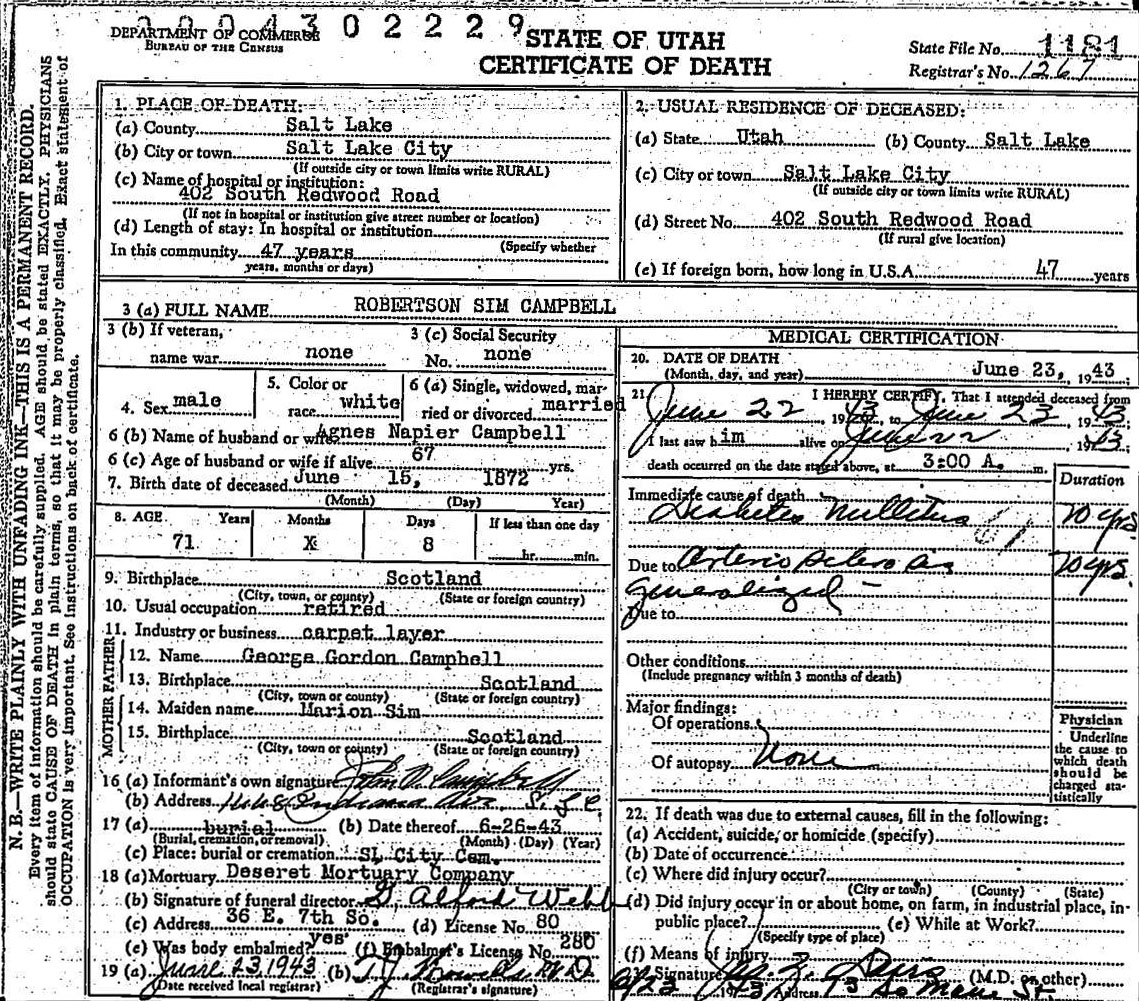 00043 0 2 2 2 9
DEPARTMENT OF COMMERCE
BUREAU OF THE CENSUS
STATE OF UTAH
CERTIFICATE OF DEATH
State File No. 1181
Registrar's No. 1267
N. B.—WRITE PLAINLY WITH UNFADING INK—THIS IS A PERMANENT RECORD.
Every item of information should be carefully supplied. AGE should be stated EXACTLY. PHYSICIANS
should state CAUSE OF DEATH in plain terms, so that it may be properly classified. Exact statement of
OCCUPATION is very important. See instructions on back of certificate.
1. PLACE OF DEATH:
(a) County Salt Lake
(b) City or town Salt Lake City
(If outside city or town limits write RURAL)
(c) Name of hospital or institution:
402 South Redwood Road
(If not in hospital or institution give street number or location)
(d) Length of stay: In hospital or institution
(Specify whether
In this community 47 years
years, months or days)
2. USUAL RESIDENCE OF DECEASED:
(a) State Utah (b) County Salt Lake
(c) City or town Salt Lake City
(If outside city or town limits write RURAL)
(d) Street No. 402 South Redwood Road
(If rural give location)
(e) If foreign born, how long in U.S.A. 47 years
3 (a) FULL NAME ROBERTSON SIM CAMPBELL
3 (b) If veteran,
name war none
3 (c) Social Security
No. none
4. Sex male
5. Color or
race white
6 (a) Single, widowed, mar-
ried or divorced married
6 (b) Name of husband or wife Agnes Napier Campbell
6 (c) Age of husband or wife if alive 67 yrs.
7. Birth date of deceased June 15, 1872
(Month) (Day) Year)
8. AGE Years Months Days If less than one day
71 X 8 hr. min.
9. Birthplace Scotland
(City, town, or county) (State or foreign country)
10. Usual occupation retired
11. Industry or business carpet layer
FATHER
12. Name George Gordon Campbell
13. Birthplace Scotland
(City, town or county) (State or foreign country)
MOTHER
14. Maiden name Marion Sim
15. Birthplace Scotland
(City, town or county) (State or foreign country)
16 (a) Informant's own signature Campbell
(b) Address Indiana Ave. S. L. C.
17 (a) burial (b) Date thereof 6-26-43
(Burial, cremation, or removal) (Month) (Day) (Year)
(c) Place: burial or cremation SL City Cem.
18 (a) Mortuary Deseret Mortuary Company
(b) Signature of funeral director G. Alford Webb
(c) Address 36 E. 7th So. (d) License No. 80
(e) Was body embalmed? yes (f) Embalmer's License No. 280
19 (a) June 23 1943 (b) T.J. Howells
(Date received local registrar) (Registrar's signature)
MEDICAL CERTIFICATION
20. DATE OF DEATH
(Month, day, and year) June 23, 1943
21. I HEREBY CERTIFY, That I attended deceased from
June 22 1943 to June 23 1943.
I last saw him alive on June 22 1943;
death occurred on the date stated above, at 3:00 A. m.
Duration
Immediate cause of death
Diabetes Mellitus 61 20 yrs
Due to Arterio Sclerosis 20 yrs.
generalized —
Due to
Other conditions
(Include pregnancy within 3 months of death)
Major findings:
Of operations
Of autopsy None
Physician
Underline
the cause to
which death
should be
charged sta-
tistically
22. If death was due to external causes, fill in the following:
(a) Accident, suicide, or homicide (specify)
(b) Date of occurrence
(c) Where did injury occur?
(City or town) (County) (State)
(d) Did injury occur in or about home, on farm, in industrial place, in-
public place? (e) While at Work?
(Specify type of place)
(f) Means of injury
Signature Davis (M.D. or other)
Address So Main St